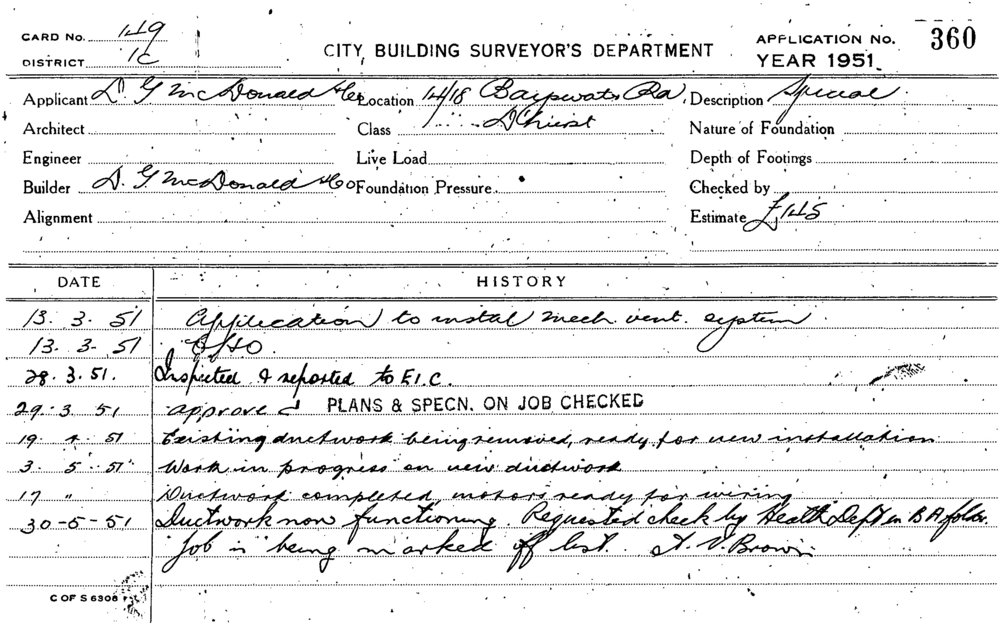 CARD No. 149
DISTRICT 1C
CITY BUILDING SURVEYOR'S DEPARTMENT
APPLICATION No. 360
YEAR 1951
Applicant D. G. McDonald & Co Location 14/18 Bayswater Rd, Description Special
Architect Class D'hurst Nature of Foundation
Engineer Live Load Depth of Footings
Builder D. G. McDonald & Co Foundation Pressure Checked by
Alignment Estimate £145
DATE HISTORY
13. 3. 51 Application to instal mech. vent. system
13. 3. 51
28. 3. 51. Inspected & reported to E.I.C.
29. 3. 51 approved PLANS & SPECN. ON JOB CHECKED
19. 4. 51 Existing ductwork being removed, ready for new installation
3. 5. 51 Work in progress on new ductwork
17 " Ductwork completed, motors ready for wiring
30-5-51 Ductwork now functioning. Requested check by Health Dept in B A folder.
Job is being marked off list. A. V. Brown
C OF S 6308